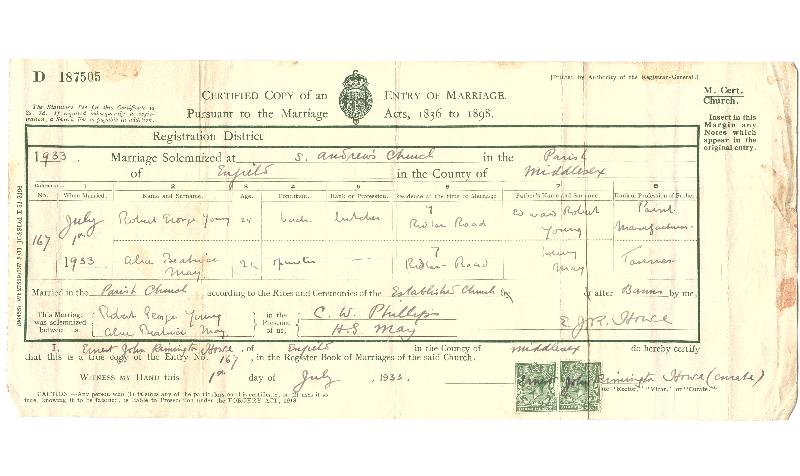 D 187505
[Printed by Authority of the Registrar-General.]
CERTIFIED COPY of an ENTRY OF MARRIAGE.
Pursuant to the Marriage Acts, 1836 to 1898.
M. Cert.
Church.
The Statutory Fee for this Certificate is
Insert in this
Margin any
Notes which
appear in the
original entry.
Registration District
1933. Marriage Solemnized at S. Andrew's Church in the Parish
of Enfield in the County of Middlesex
1 2 3 4 5 6 7 8
No. When Married. Name and Surname. Age. Condition. Rank or Profession. Residence at the time of Marriage Father's Name and Surname. Rank or Profession of Father.
167 July 1st 1933
Robert George Young bach butcher 7 Ridler Road Edward Robert Young Paint Manufacturer
Alice Beatrice May spinster — 7 Ridler Road Henry May
Married in the Parish Church according to the Rites and Ceremonies of the Established Church by or after Banns by me,
This Marriage was solemnized between us, Robert George Young
Alice Beatrice May
in the Presence of us, C. W. Phillips
H. G. May
E. J. R. Howe
I, Ernest John Rimington Howe, of Enfield in the County of Middlesex do hereby certify
that this is a true copy of the Entry No. 167, in the Register Book of Marriages of the said Church.
WITNESS MY HAND this 1st day of July, 1933.
Ernest John Rimington Howe (curate)
CAUTION.—Any person who (1) falsifies any of the particulars on this certificate, or (2) uses it as
true, knowing it to be falsified, is liable to Prosecution under the FORGERY ACT, 1913.